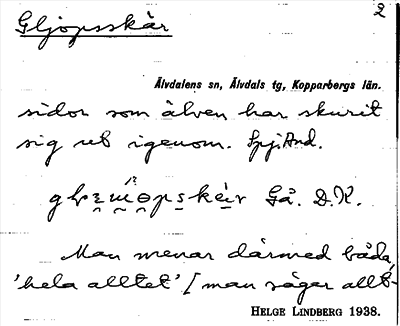 Gljopsskär
2
Älvdalens sn, Älvdals tg, Kopparbergs län.
sidor som älven har skurit
sig ut igenom.
Gå. D.K.
Man menar därmed båda,
'hela alltet' [man säger allt-
HELGE LINDBERG 1938.